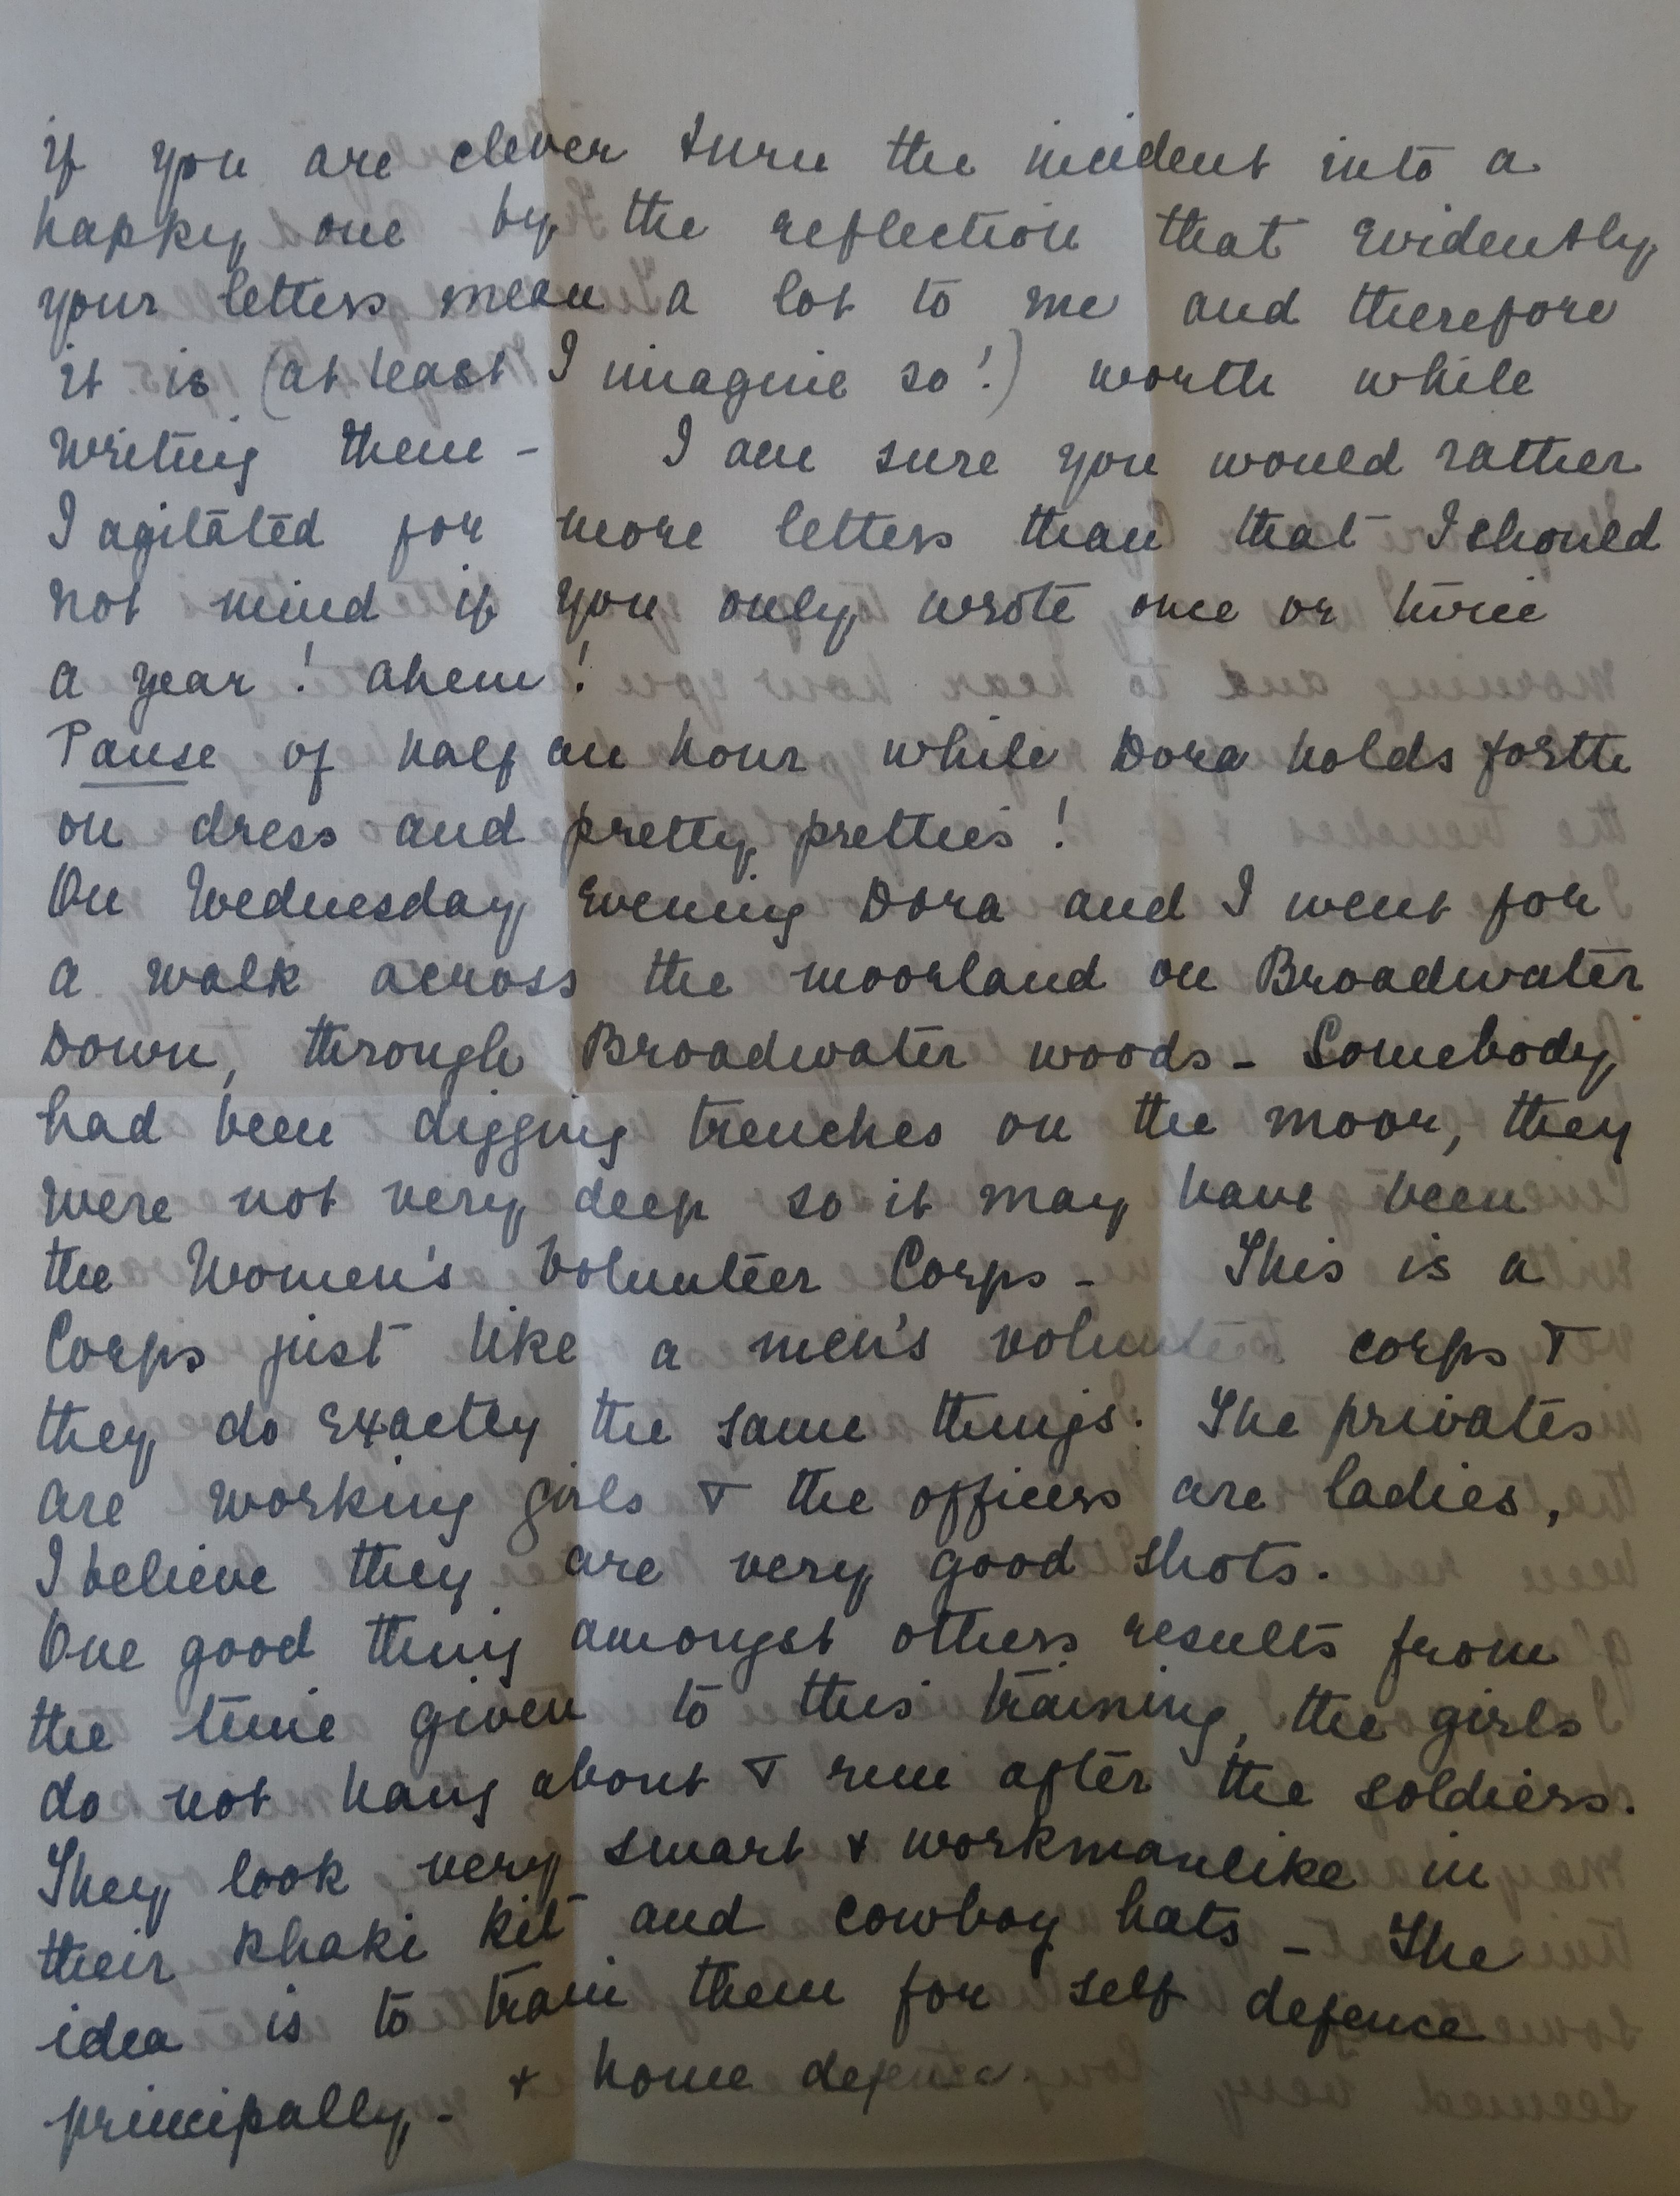 if you are clever turn the incident into a
happy one by the reflection that evidently
your letters mean a lot to me and therefore
it is (at least I imagine so!) worth while
writing them - I am sure you would rather
I agitated for more letters than that I should
not mind if you only wrote once or twice
a year! ahem!
Pause of half an hour while Dora holds forth
on dress and pretty pretties!
On Wednesday evening Dora and I went for
a walk across the moorland on Broadwater
Down, through Broadwater woods - Somebody
had been digging trenches on the moor, they
were not very deep so it may have been
the Women's Volunteer Corps - This is a
Corps just like a men's volunteer corps &
they do exactly the same things. The privates
are working girls & the officers are ladies,
I believe they are very good shots.
One good thing amongst others results from
the time given to this training, the girls
do not hang about & run after the soldiers.
They look very smart & workmanlike in
their khaki kit and cowboy hats - The
idea is to train them for self defence
principally - & home defence.